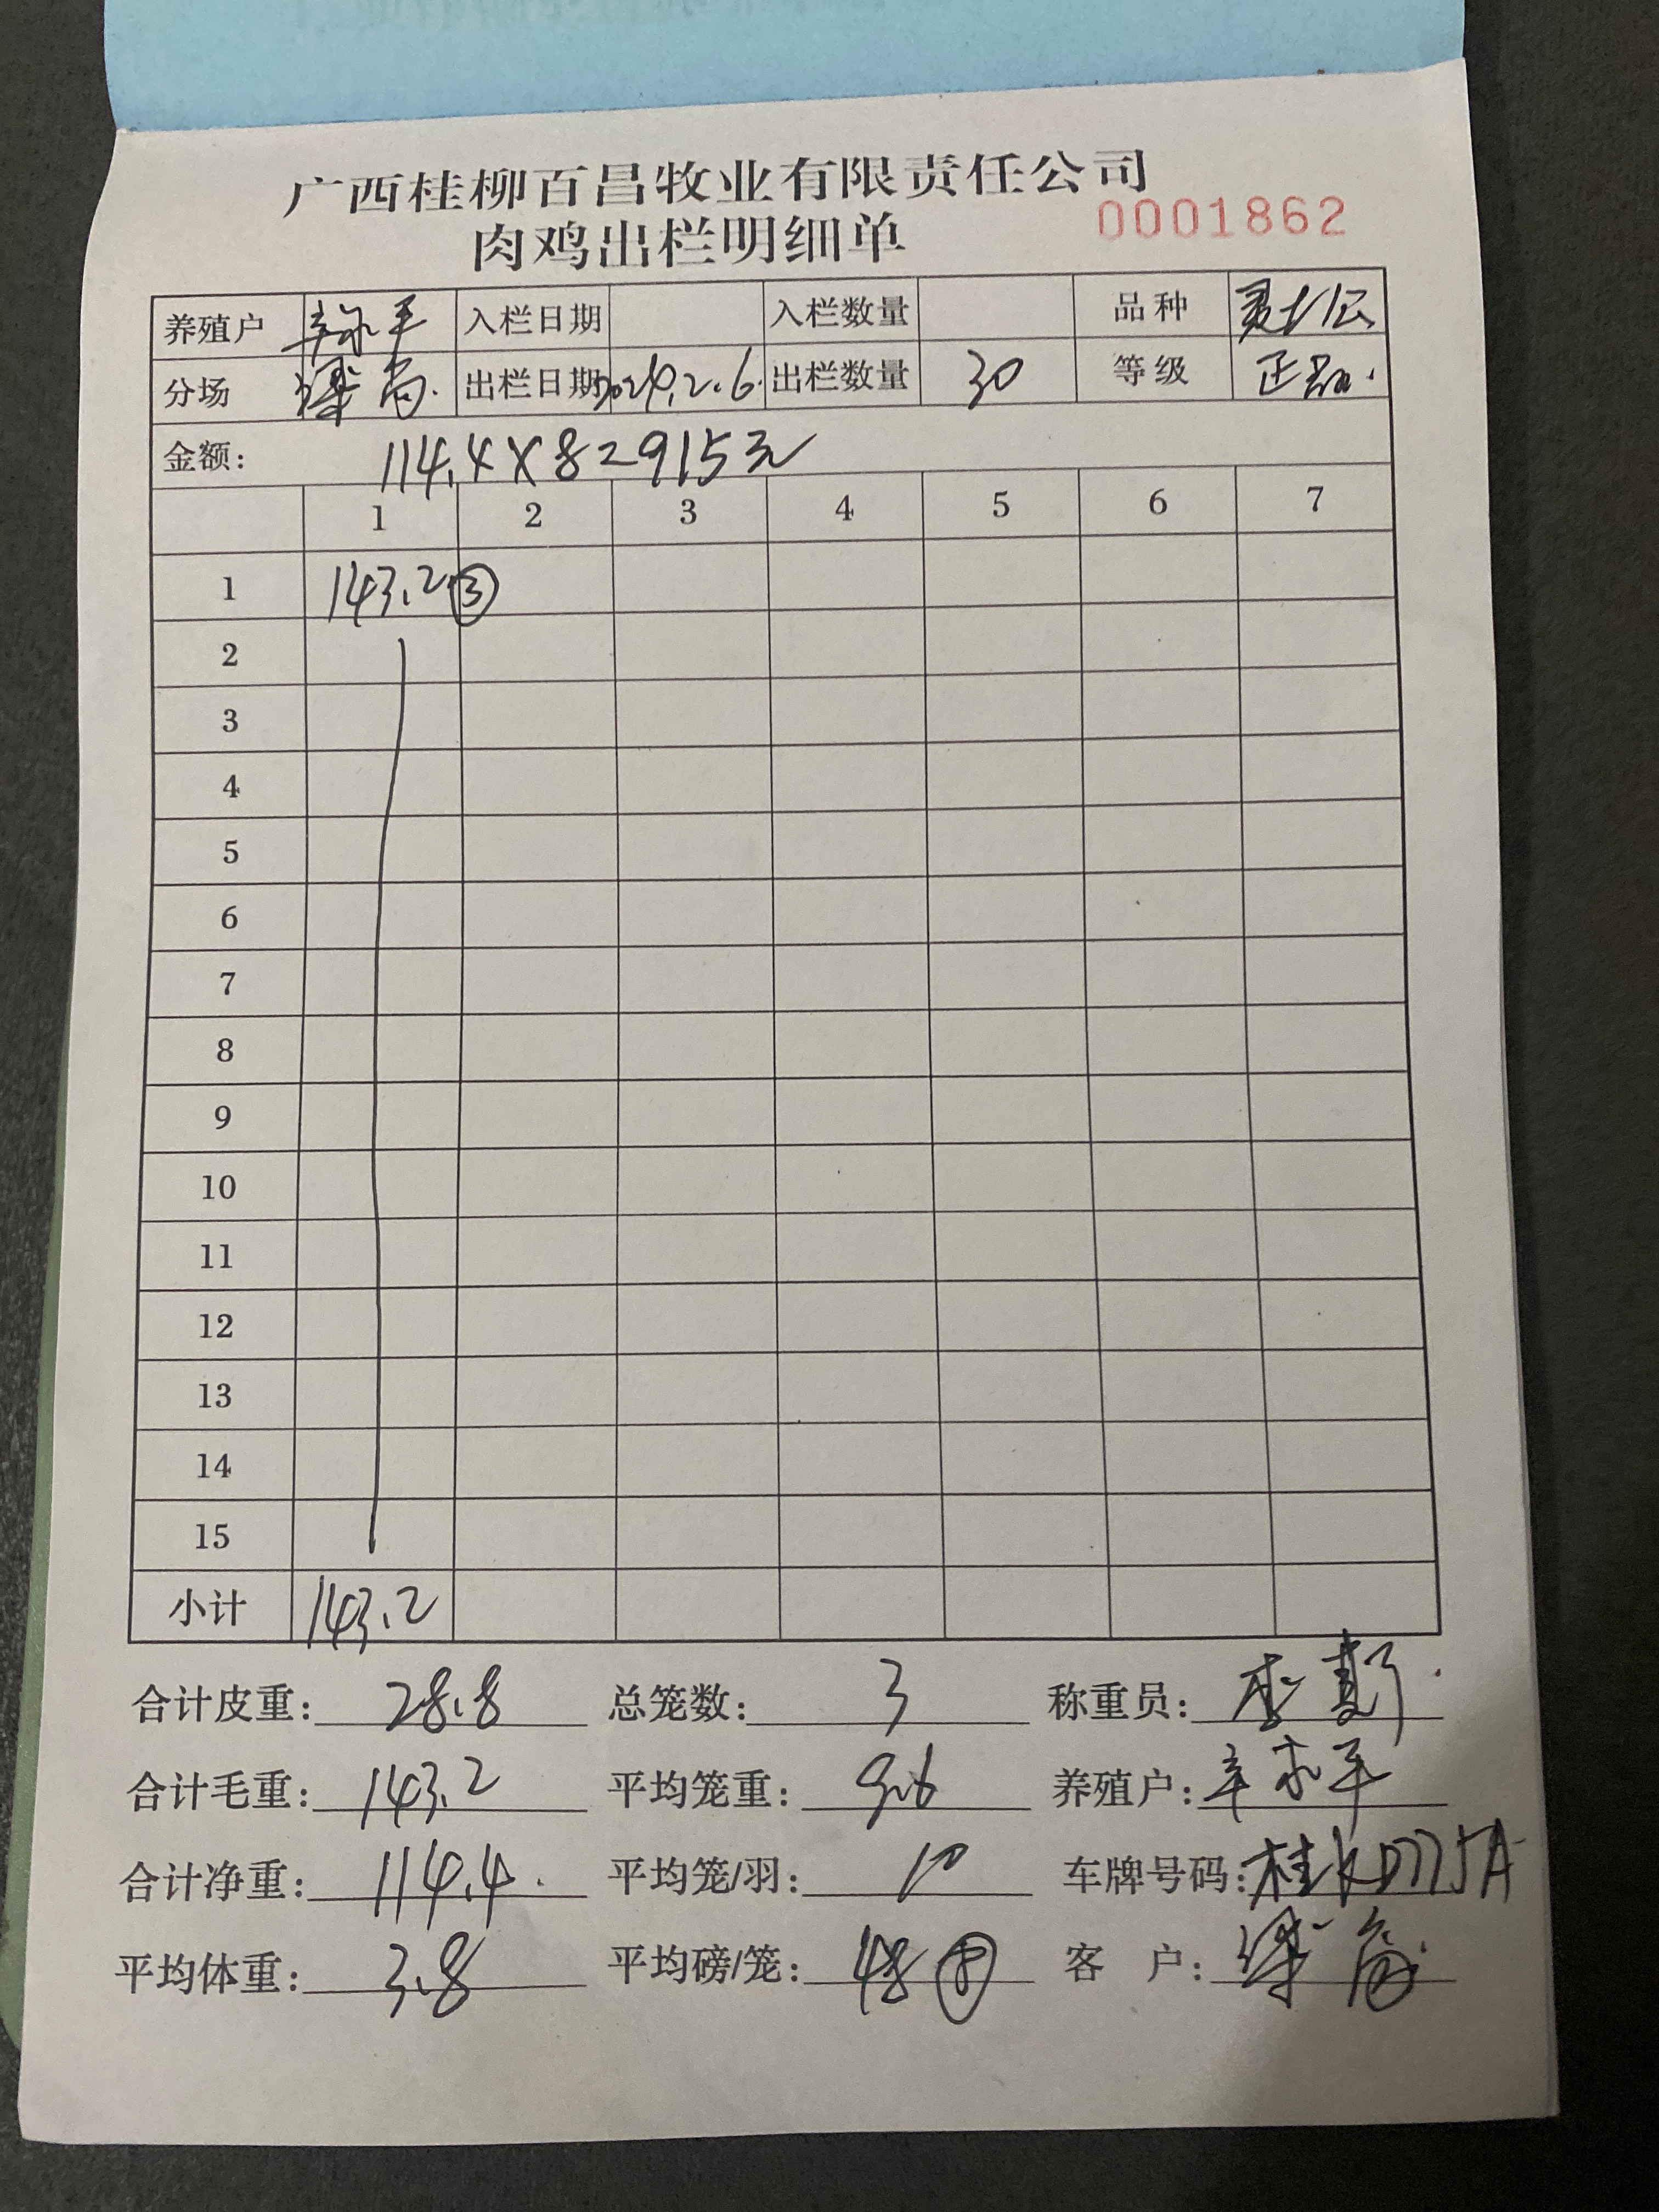 广西桂柳百昌牧业有限责任公司
肉鸡出栏明细单 0001862
养殖户 辛永平 入栏日期 入栏数量 品种
分场 梁 出栏日期 2024.2.6. 出栏数量 30 等级 正品.
金额: 114.4×8=915元
1 2 3 4 5 6 7
1 143.2 ③
2
3
4
5
6
7
8
9
10
11
12
13
14
15
小计 143.2
合计皮重: 28.8 总笼数: 3 称重员: 李
合计毛重: 143.2 平均笼重: 9.6 养殖户: 辛永平
合计净重: 114.4. 平均笼/羽: 10 车牌号码: 桂
平均体重: 3.8 平均磅/笼: 48 客 户: 梁